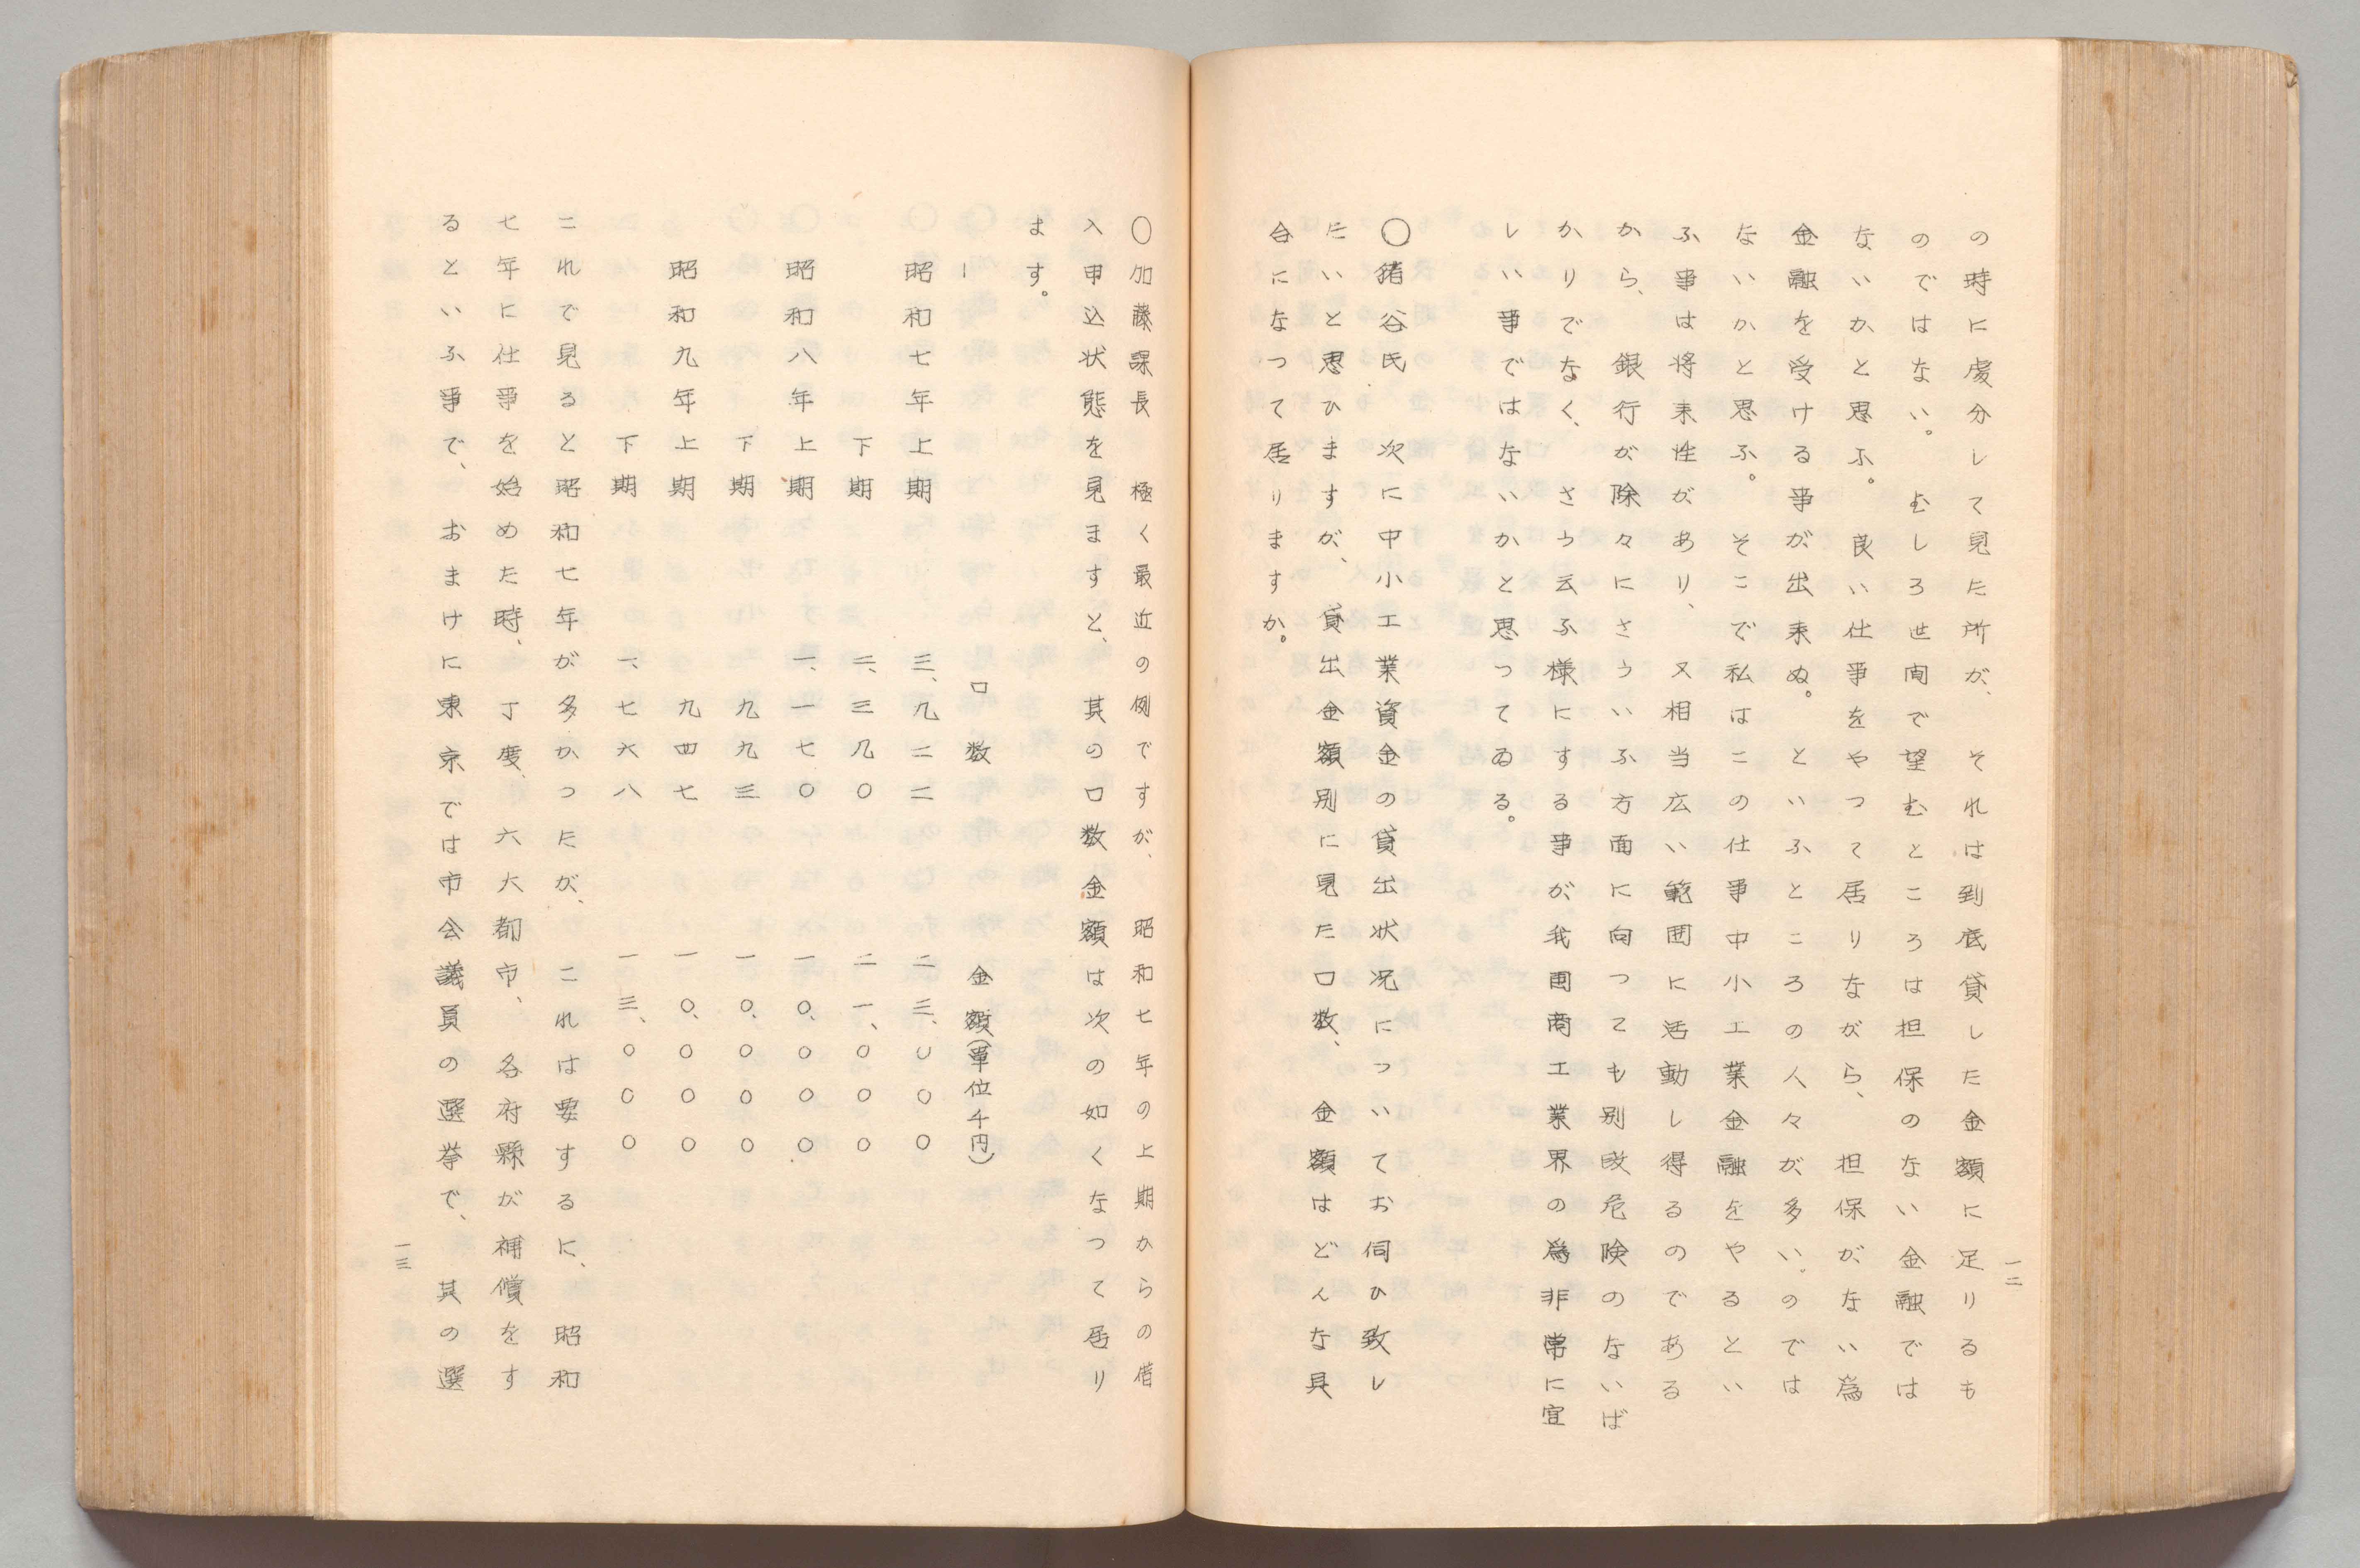 一二
の時に處分して見た所が、それは到底貸した金額に足りるも
のではない。むしろ世間で望むところは担保のない金融では
ないかと思ふ。良い仕事をやつて居りながら、担保がない為
金融を受ける事が出来ぬ。といふところの人々が多い。のでは
ないかと思ふ。そこで私はこの仕事中小工業金融をやるとい
ふ事は将来性があり、又相当広い範囲に活動し得るのである
から、銀行が除々にさういふ方面に向つても別段危険のないば
かりでなく、さう云ふ様にする事が我国商工業界の為非常に宜
しい事ではないかと思つてゐる。
〇猪谷氏 次に中小工業資金の貸出状況についてお伺ひ致し
たいと思ひますが、貸出金額別に見た口数、金額はどんな具
合になつて居りますか。
〇加藤課長 極く最近の例ですが、昭和七年の上期からの借
入申込状態を見ますと、其の口数金額は次の如くなつて居り
ます。
口数 金額(單位千円)
昭和七年上期 三、九二二 二三、〇〇〇
下期 三、三九〇 二一、〇〇〇
昭和八年上期 一、一七〇 一〇、〇〇〇
下期 九九三 一〇、〇〇〇
昭和九年上期 九四七 一〇、〇〇〇
下期 一、七六八 一三、〇〇〇
これで見ると昭和七年が多かつたが、これは要するに、昭和
七年に仕事を始めた時、丁度六大都市、各府縣が補償をす
るといふ事で、おまけに東京では市会議員の選挙で、其の選
一三